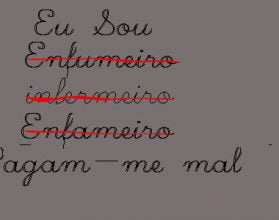 Eu Sou
Enfumeiro
infermeiro
Enfameiro
Pagam-me mal